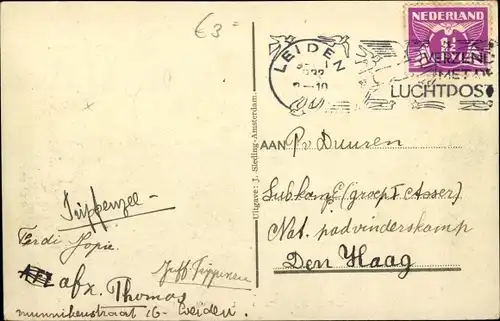 €3=
NEDERLAND
LEIDEN
VERZEND
MET DE
LUCHTPOST
Uitgave: J. Sleding-Amsterdam.
AAN P. v Duuren
Subkamp E (groep I Asser)
Nat. padvinderskamp
Den Haag
Ferdi Jopie.
afz. Thomas
munnikenstraat 16 - Leiden.